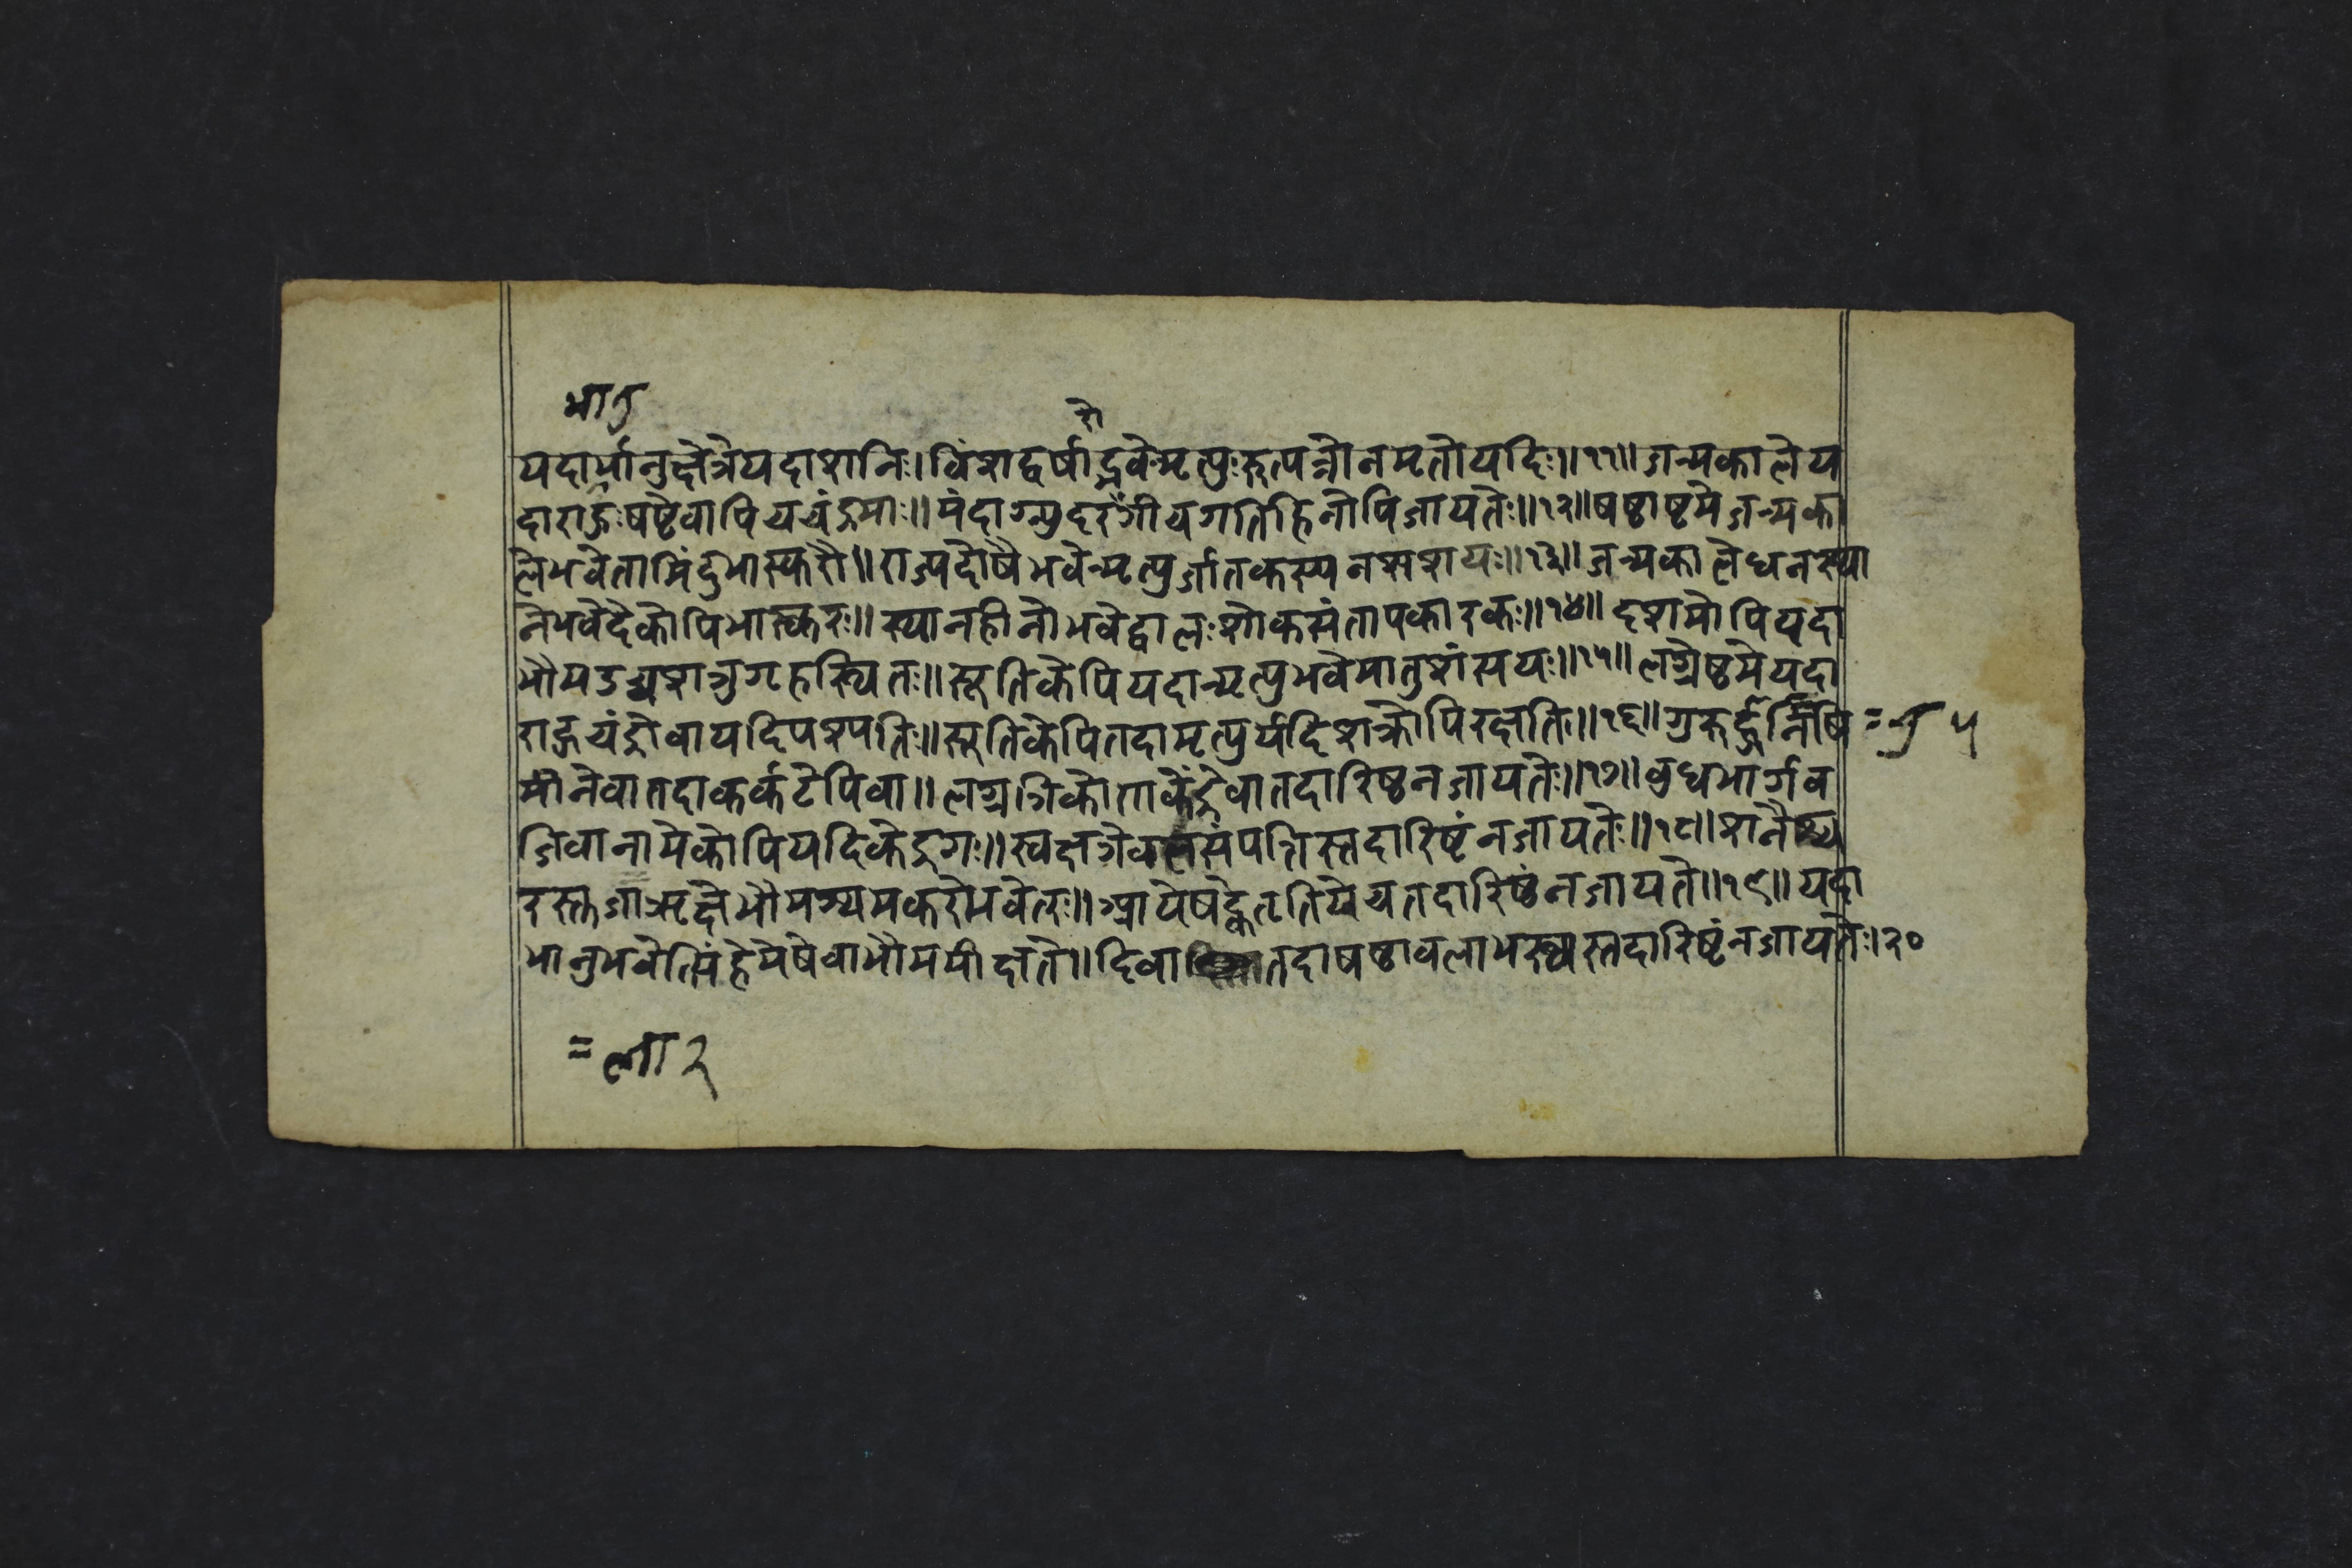 भानु
यदाभानुक्षेत्रेयदाशनिः। विंशद्वर्षाद्भवेन्मृत्युःरुत्पन्नोनमृतोयदिः॥११॥जन्मकालेय
दाराहुःषष्टेवापिचचंद्रमाः॥मंदाग्न्युदररोगीचगतिहिनोपिजायतेः॥१२॥षष्ठाष्टमेजन्मका
लेभवेतामिंदुभास्करौ॥राज्यदोषैभवेन्मृत्युर्जातकस्यनसशयः॥१३॥जन्मकालेधनस्था
नेभवेदेकोपिभास्करः॥स्थानहीनोभवेद्वालःशोकसंतापकारकः॥१४॥दशमोपियदा
भौमउच्चशत्रुगृहस्थितः॥सूतिकेपियदान्मृत्युभवेमातुशंसयः॥१५॥लग्नेष्टमेयदा
राहुचंद्रोवायदिपश्यतिः॥सूतिकेपितदामृत्युर्यदिशक्रोपिरक्षतिः॥१६॥
मीनेवातदाकर्कटेपिवा॥लग्नत्रिकोणकेंद्रेवातदारिष्ठनजायतेः॥१७॥बुधभार्गव
जिवानामेकोपियदिकेंद्रगः॥स्वक्षत्रेबलसंपत्तिस्तदारिष्टंनजायतेः॥१८॥शनैश्च
रस्तुजाऋक्षेभौमश्चमकरेभवेत्ः॥ तदारिष्ठंनजायते॥१९॥यदा
भानुभवेत्सिंहेमेषेवाभौममीक्षते॥दिवा तदाषष्ठाबलाभस्थस्तदारिष्टंनजायतेः।२०